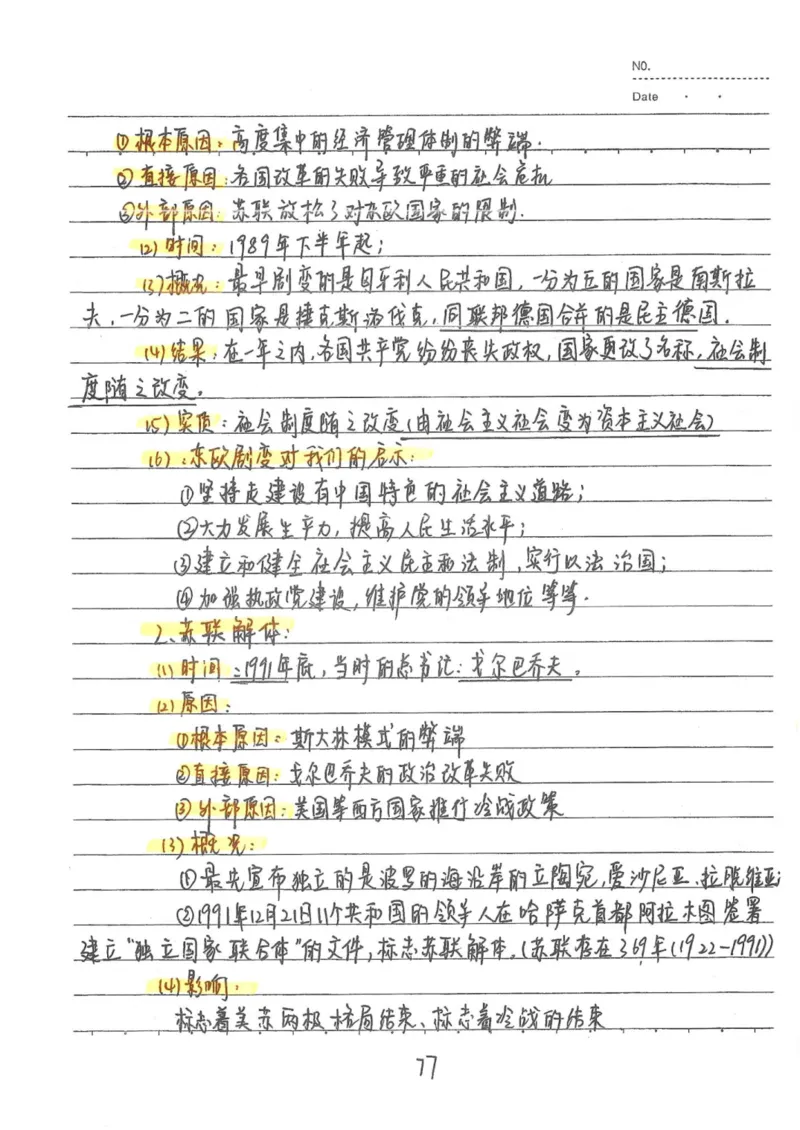 NO.
Date · ·
①根本原因：高度集中的经济管理体制的弊端.
②直接原因：各国改革的失败导致严重的社会危机
③外部原因：苏联放松了对东欧国家的限制.
(2)时间：1989年下半年起；
(3)概况：最早剧变的是匈牙利人民共和国，一分为五的国家是南斯拉
夫，一分为二的国家是捷克斯洛伐克，同联邦德国合并的是民主德国.
(4)结果：在一年之内，各国共产党纷纷丧失政权，国家更改了名称，社会制
度随之改变。
(5)实质：社会制度随之改变(由社会主义社会变为资本主义社会)
(6)：东欧剧变对我们的启示：
①坚持走建设有中国特色的社会主义道路；
②大力发展生产力，提高人民生活水平；
③建立和健全社会主义民主和法制，实行以法治国；
④加强执政党建设，维护党的领导地位等等.
2、苏联解体：
(1)时间：1991年底，当时的总书记：戈尔巴乔夫。
(2)原因：
①根本原因：斯大林模式的弊端
②直接原因：戈尔巴乔夫的政治改革失败
③外部原因：美国等西方国家推行冷战政策
(3)概况：
①最先宣布独立的是波罗的海沿岸的立陶宛，爱沙尼亚、拉脱维亚；
②1991年12月21日11个共和国的领导人在哈萨克首都阿拉木图签署
建立“独立国家联合体”的文件，标志苏联解体.(苏联存在了69年(1922-1991))
(4)影响：
标志着美苏两极格局结束、标志着冷战的结束
77